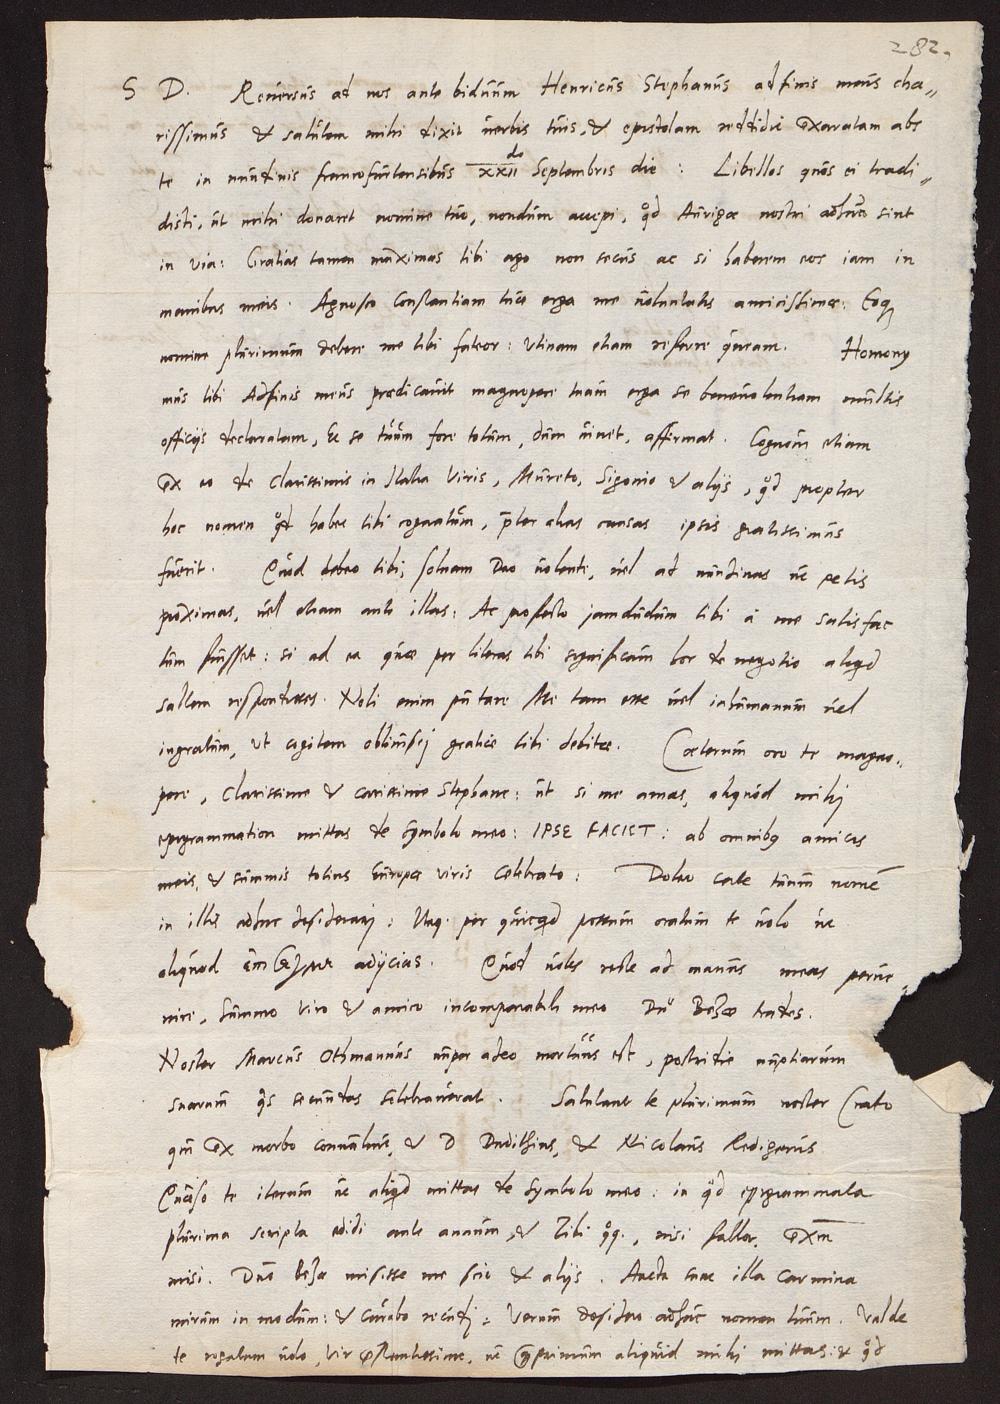 282.
S D. Reuersus ad nos ante biduum Henricus Stephanus adfinis meus cha„
rissimus & salutem mihi dixit uerbis tuis, & epistolam reddidit exaratam abs
te in nundinis francofurtensibus xxii do Septembris die : Libellos quos ei tradi„
disti, ut mihi donaret nomine tuo, nondum accepi, qd Aurigae nostri adhuc sint
in via: Gratias tamen maximas tibi ago non secus ac si haberem eos iam in
manibus meis. Agnosco constantiam tuae erga me uoluntatis amicissimae: Eoq
nomine plurimum debere me tibi fateor: Utinam etiam referre queam. Homony
mus tibi Adfinis meus praedicauit magnopere tuam erga se beneuolentiam multis
officijs declaratam, & se tuum fore totum, dum uiuet, affirmat. Cognoui etiam
ex eo de clarissimis in Italia Viris, Mureto, Sigonio & alijs, qd propter
hoc nomen qd habet tibi cognatum, pter alias causas ipsis gratissimus
fuerit. Quod debeo tibi, soluam Deo uolenti, uel ad nundinas ue
proximas, uel etiam ante illas: Ac profecto jamdudum tibi à me satisfac
tum fuisset: si ad ea quae per literas tibi significaui hoc de negotio aliqd
saltem respondisses. Noli enim putare Me tam esse uel inhumanum uel
ingratum, ut cogitem obliuisci gratiae tibi debitae. Caeterum oro te magno„
pere, Clarissime & carissime Stephane: ut si me amas, aliquod mihi
epigrammation mittas de symbolo meo: IPSE FACIET : ab omnibq amicis
meis, & summis totius Europae viris celebrato: Doleo certe tuum nome
in illis adhuc desiderari: Itaq. per quicqd possum oratum te uolo ut
aliquod adijcias. Quod uoles recte ad manus meas perue„
nire, summo viro & amico incomparabili meo Dno Bezae trades.
Noster Marcus Othmannus nuper adeo mortuus est, postridie nuptiarum
suarum qs secundas celebrauerat. Salutant te plurimum noster Crato
qui ex morbo conualuit, & D Dudithius, & Nicolaus Redigerus
Quaeso te iterum ut aliqd mittas de symbolo meo: in qd epigrammata
plurima scripta edidi ante annum, & Tibi qq., nisi fallor, exm
misi. Dno Bezae misisse me scio & alijs. Aucta sunt illa carmina
mirum in modum: & curabo recudi: Verum desidero adhuc nomen tuum. Valde
te rogatum uolo, vir praestantissime, ut qprimum aliquid mihi mittas: & qd